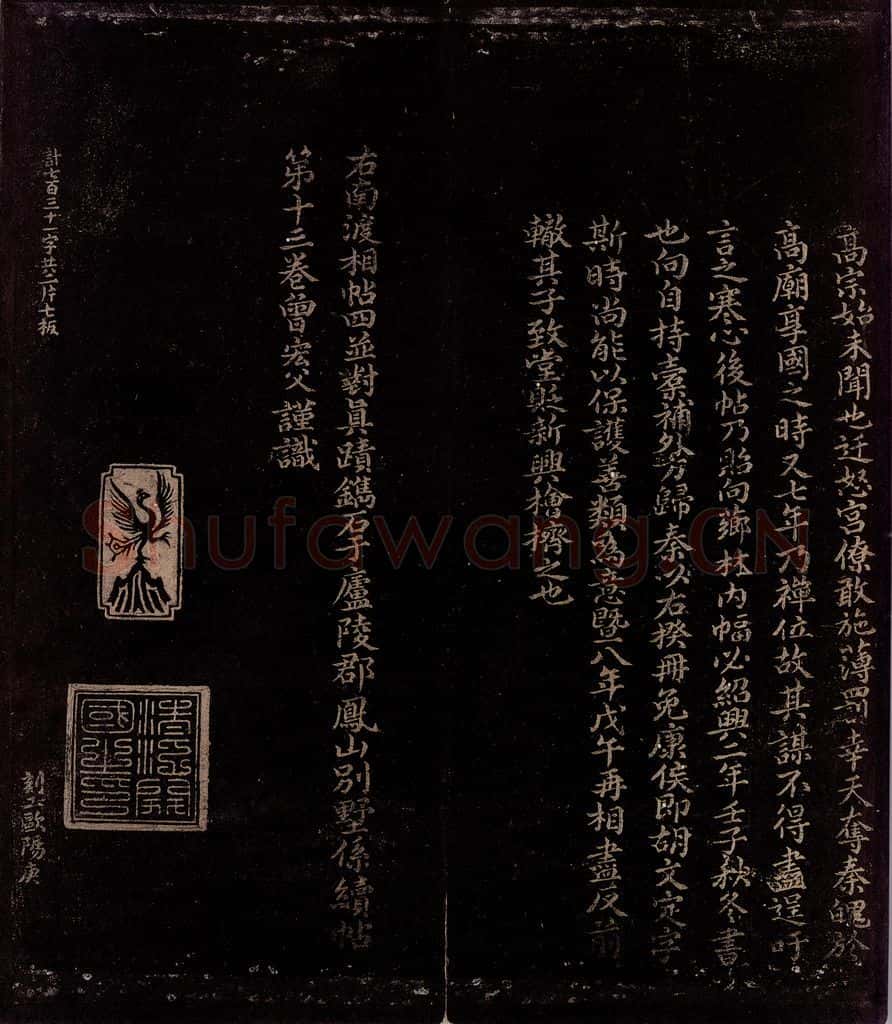 高宗始未聞也迁怒宮僚敢施薄罰幸天奪秦魄於
高廟享國之時又七年乃禪位故其謀不得盡逞吁
言之寒心後帖乃貽向薌林内幅必紹興二年壬子秋冬書
也向自持橐補外歸秦以右揆冊免康侯即胡文定字
斯時尚能以保護善類為意暨八年戊午再相盡反前
轍其子致堂貶新興檜擠之也
右南渡相帖四並對真蹟鐫石于廬陵郡鳳山别墅係續帖
第十三卷曾宏父謹識
計七百三十一字共二片七板
刻工歐陽庚
Shufawang.CN